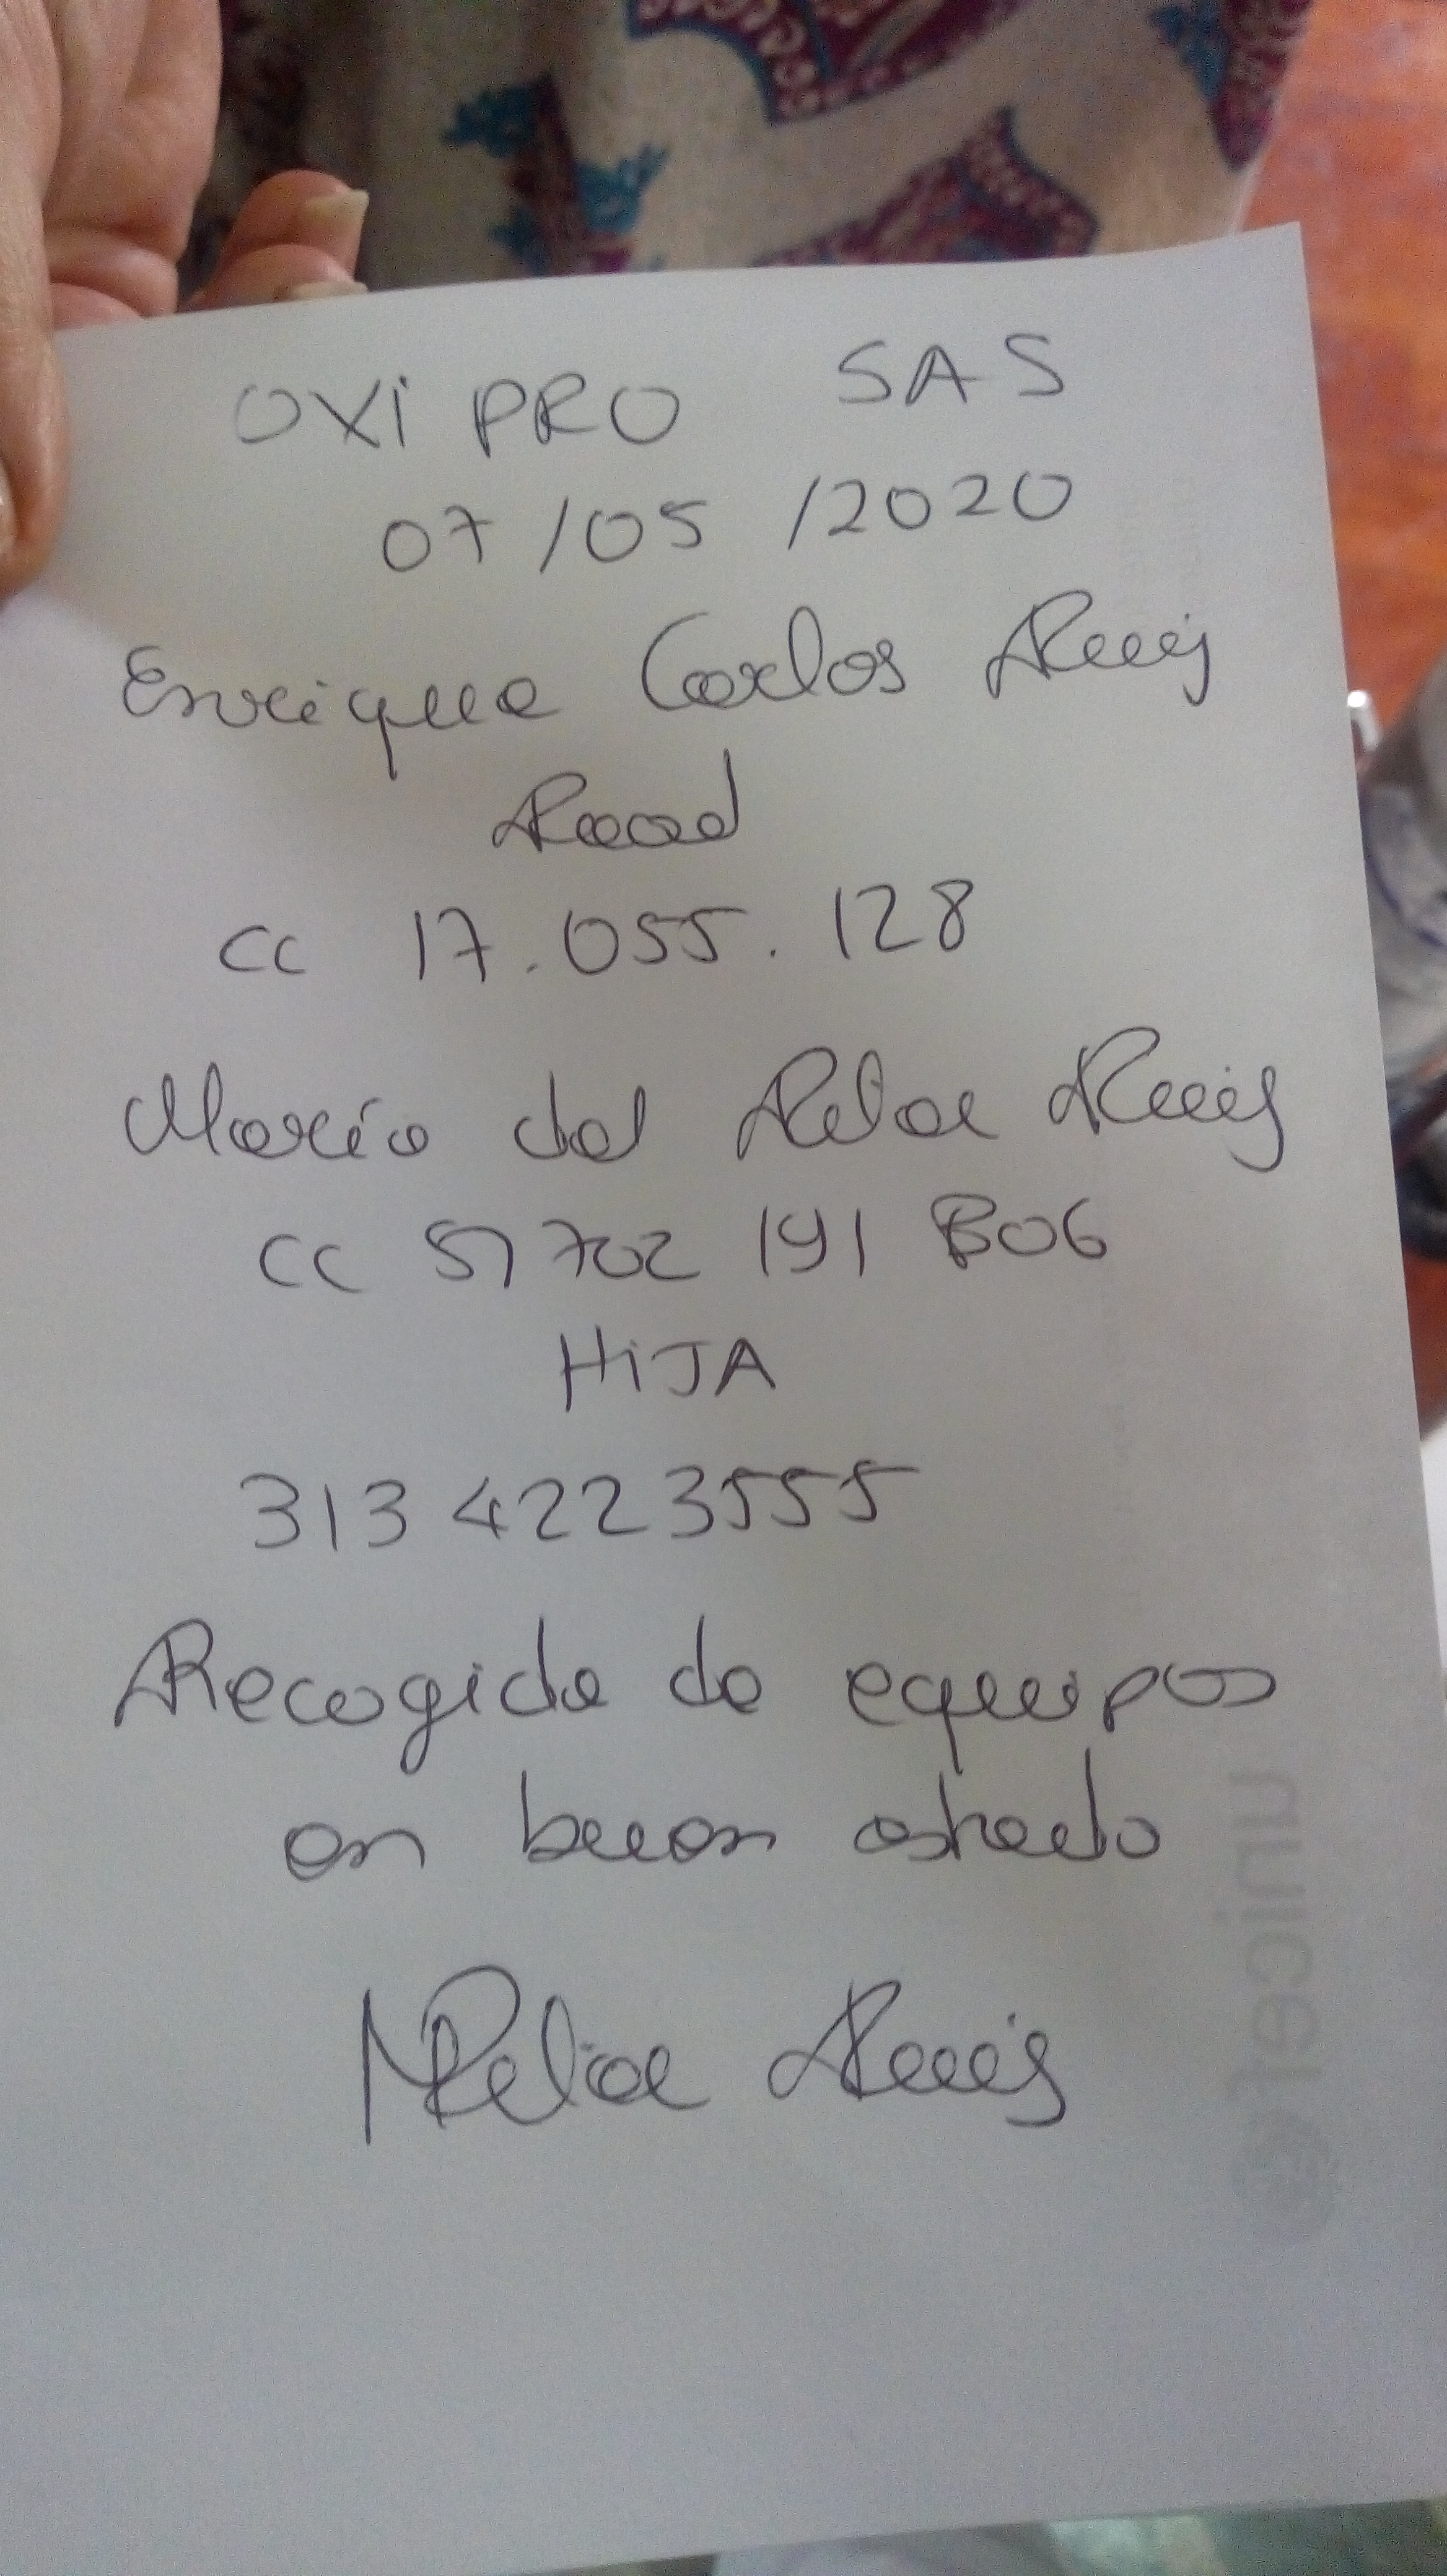 OXi PRO SAS
07/05/2020
Enrique Carlos Ruiz
CC 17.055.128
María del Pilar Ruiz
CC 51702 191 BOG
HiJA
313 4223555
Recogida de equipos
en buen estado
MPilar Ruiz